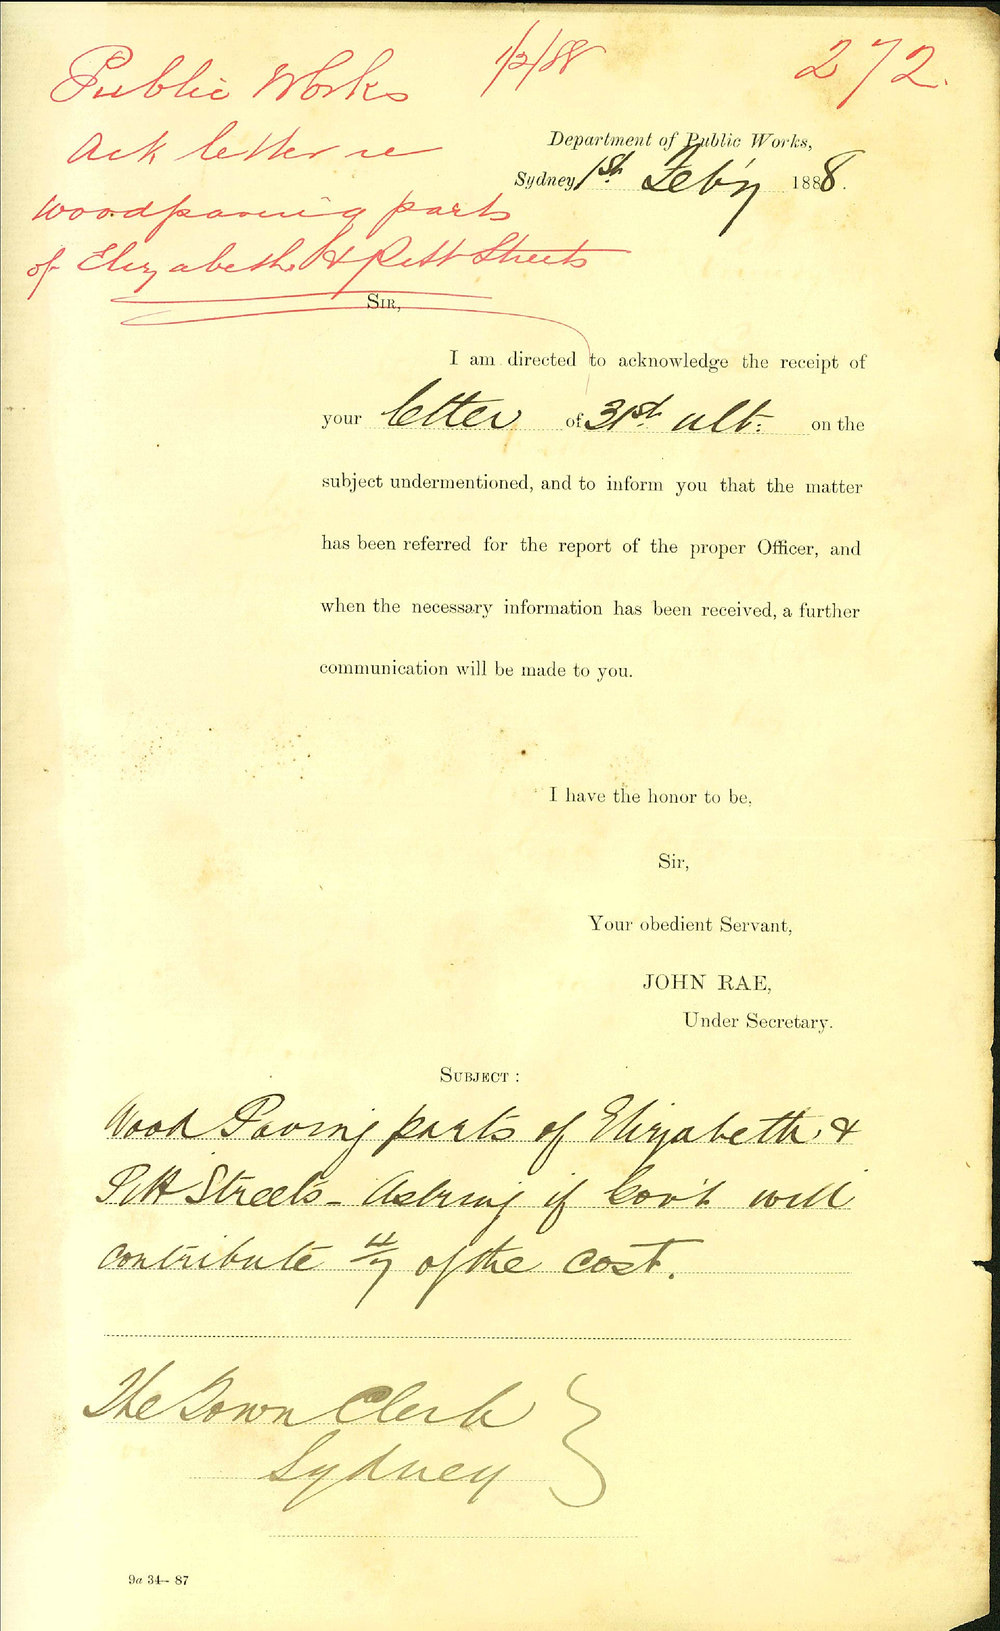 Public Works 1/2/88 272.
Ack letter re
woodpaving parts
of Elizabeth & Pitt Streets
Department of Public Works,
Sydney 1st. Feb'y 1888.
SIR,
I am directed to acknowledge the receipt of
your letter of 31st. ult: on the
subject undermentioned, and to inform you that the matter
has been referred for the report of the proper Officer, and
when the necessary information has been received, a further
communication will be made to you.
I have the honor to be,
Sir,
Your obedient Servant,
JOHN RAE,
Under Secretary.
SUBJECT :
Wood Paving parts of Elizabeth &
Pitt Streets - Asking if Gov't will
contribute of the cost.
The Town Clerk
Sydney
9a 34— 87